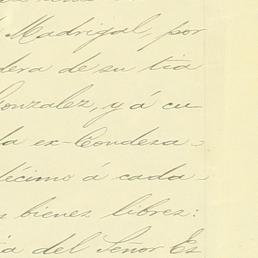 Madrigal, por
dera de su tia
Gonzalez, y á cu
la ex-Condesa-
décimo á cada-
s bienes libres:
ia del Señor Es